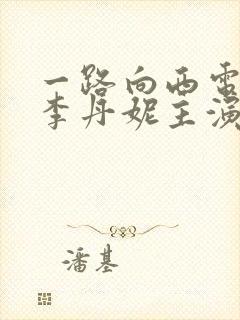 一路向西电
李丹妮主演
潘基